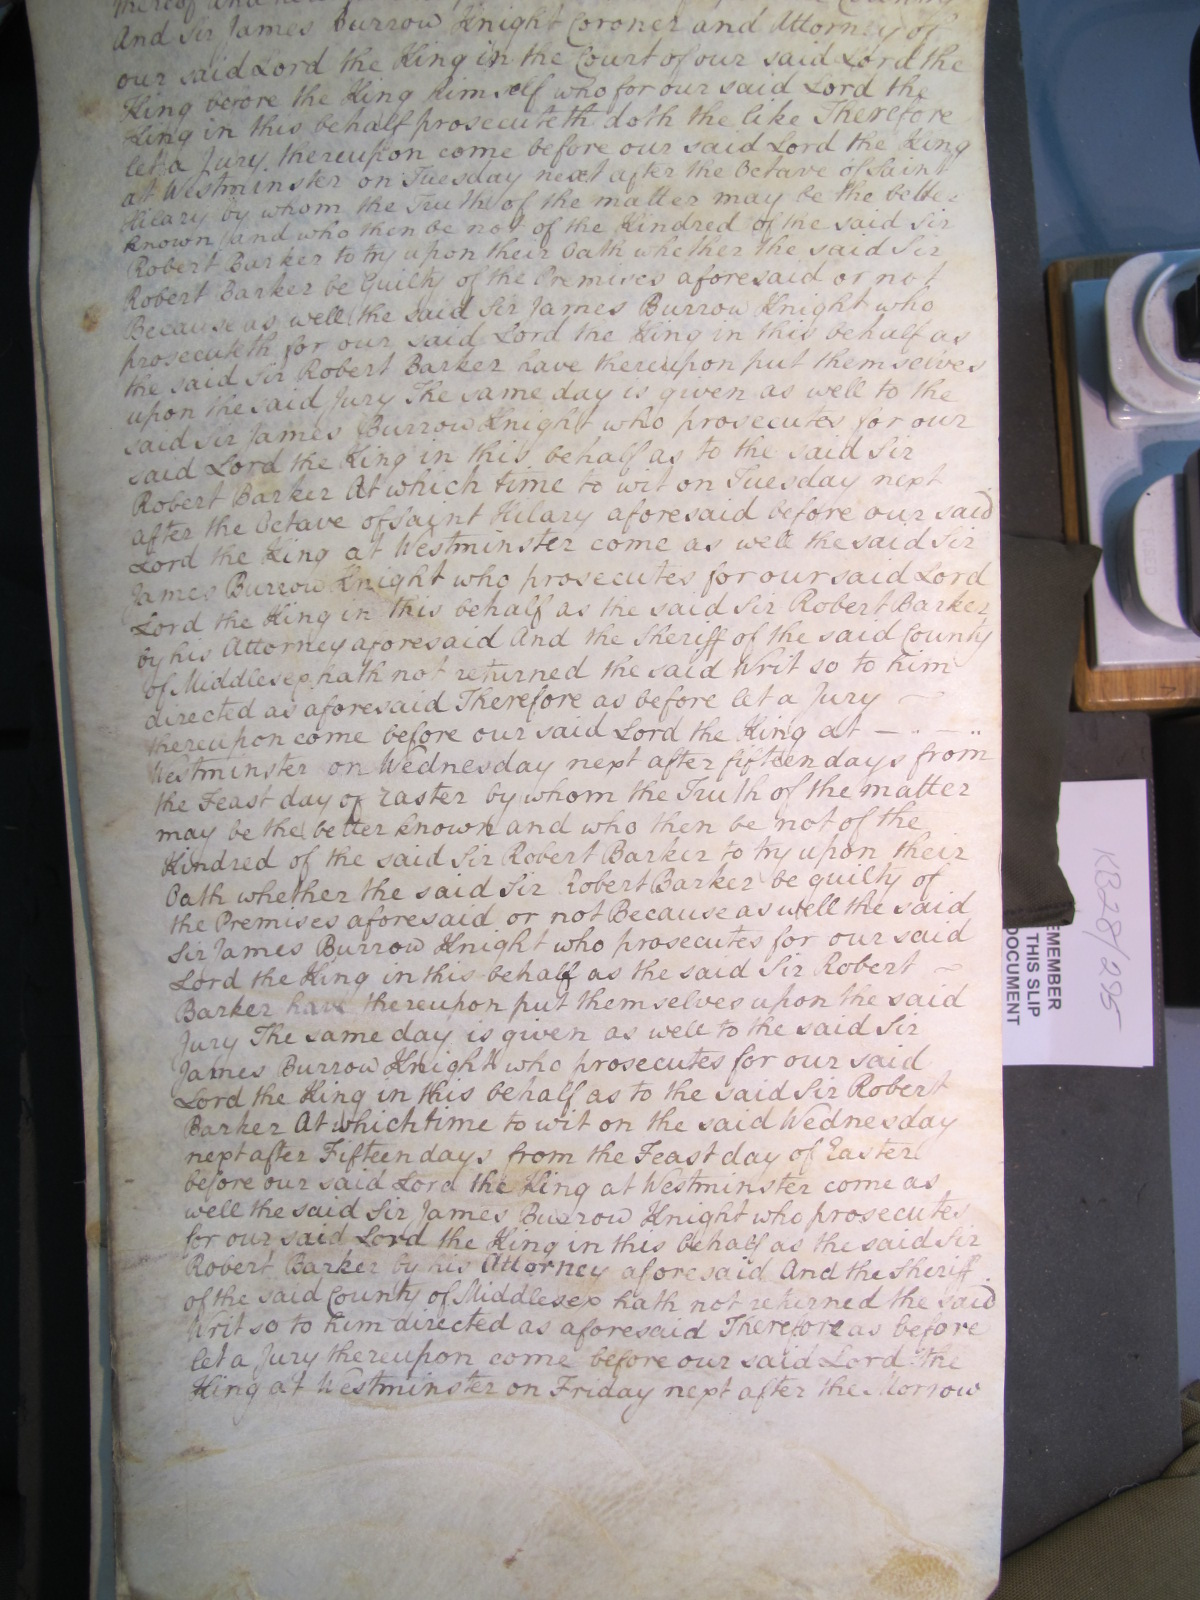 thereof and
And Sir James Burrow Knight Coroner and Attorney of
our said Lord the King in the Court of our said Lord the
King before the King himself who for our said Lord the
King in this behalf prosecuteth doth the like Therefore
let a Jury thereupon come before our said Lord the King
at Westminster on Tuesday next after the Octave of Saint
Hilary by whom the Truth of the matter may be the better
known and who then be not of the Kindred of the said Sir
Robert Barker to try upon their Oath whether the said Sir
Robert Barker be Guilty of the Premises aforesaid or not
Because as well the said Sir James Burrow Knight who
prosecuteth for our said Lord the King in this behalf as
the said Sir Robert Barker have thereupon put themselves
upon the said Jury The same day is given as well to the
said Sir James Burrow Knight who prosecutes for our
said Lord the King in this behalf as to the said Sir
Robert Barker At which time to wit on Tuesday next
after the Octave of Saint Hilary aforesaid before our said
Lord the King at Westminster come as well the said Sir
James Burrow Knight who prosecutes for our said Lord
Lord the King in this behalf as the said Sir Robert Barker
by his Attorney aforesaid And the Sheriff of the said County
of Middlesex hath not returned the said Writ so to him
directed as aforesaid Therefore as before let a Jury ~
thereupon come before our said Lord the King at — · — ··
Westminster on Wednesday next after fifteen days from
the Feast day of Easter by whom the Truth of the matter
may be the better known and who then be not of the
Kindred of the said Sir Robert Barker to try upon their
Oath whether the said Sir Robert Barker be guilty of
the Premises aforesaid or not Because as well the said
Sir James Burrow Knight who prosecutes for our said
Lord the King in this behalf as the said Sir Robert ~
Barker have thereupon put themselves upon the said
Jury The same day is given as well to the said Sir
James Burrow Knight who prosecutes for our said
Lord the King in this behalf as to the said Sir Robert
Barker At which time to wit on the said Wednesday
next after Fifteen days from the Feast day of Easter
before our said Lord the King at Westminster come as
well the said Sir James Burrow Knight who prosecutes
for our said Lord the King in this behalf as the said Sir
Robert Barker by his Attorney aforesaid And the Sheriff
of the said County of Middlesex hath not returned the said
Writ so to him directed as aforesaid Therefore as before
let a Jury thereupon come before our said Lord the
King at Westminster on Friday next after the Morrow
KB28/295
EMEMBER
THIS SLIP
DOCUMENT